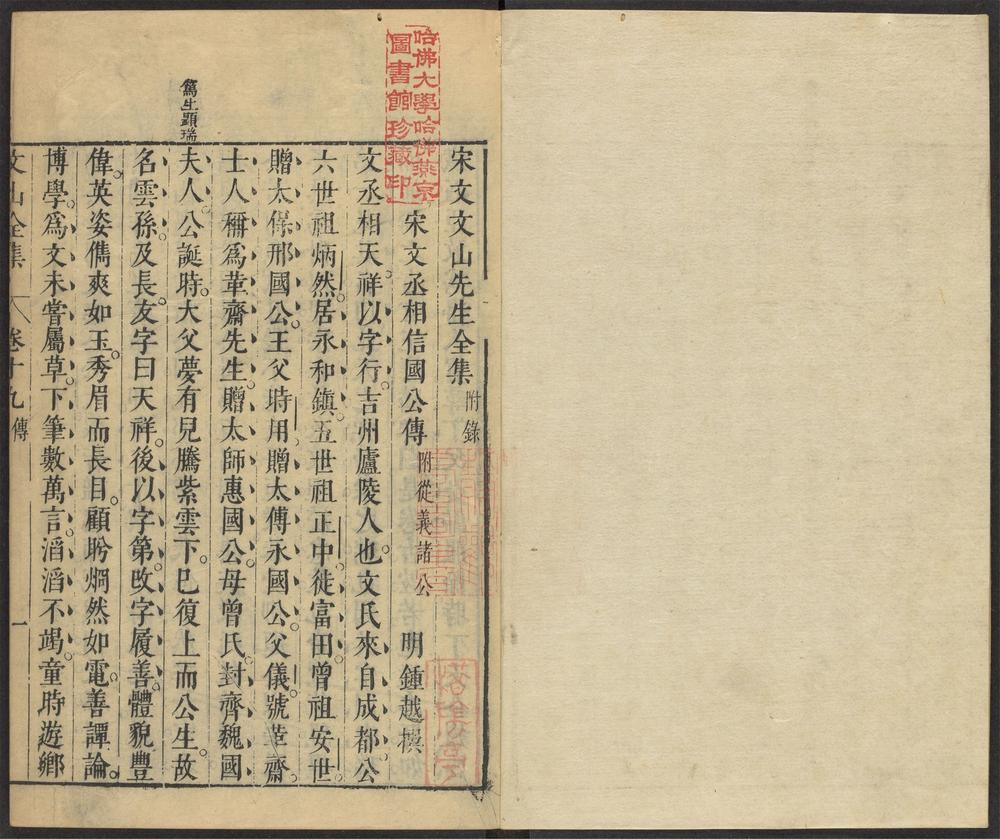 哈佛大學哈佛燕京
圖書館珍藏印
宋文文山先生全集附錄
宋文丞相信國公傳附從義諸公 明鍾越撰
文丞相天祥以字行。吉州廬陵人也。文氏來自成都。公
六世祖炳然。居永和鎮。五世祖正中。徙富田。曾祖安世
贈太保邢國公。王父時用。贈太傅永國公。父儀。號革齋。
士人稱爲革齋先生。贈太師惠國公。母曾氏。封齊魏國
夫人。公誕時。大父夢有兒騰紫雲下。巳復上而公生。故
名雲孫。及長。友字曰天祥。後以字第。改字履善。體貌豐
偉。英姿儁爽如玉。秀眉而長目。顧盻烱然如電。善譚論。
博學。爲文未嘗屬草。下筆數萬言。滔滔不竭。童時遊鄉
篤生顯瑞
文山全集 卷十九 傳 一